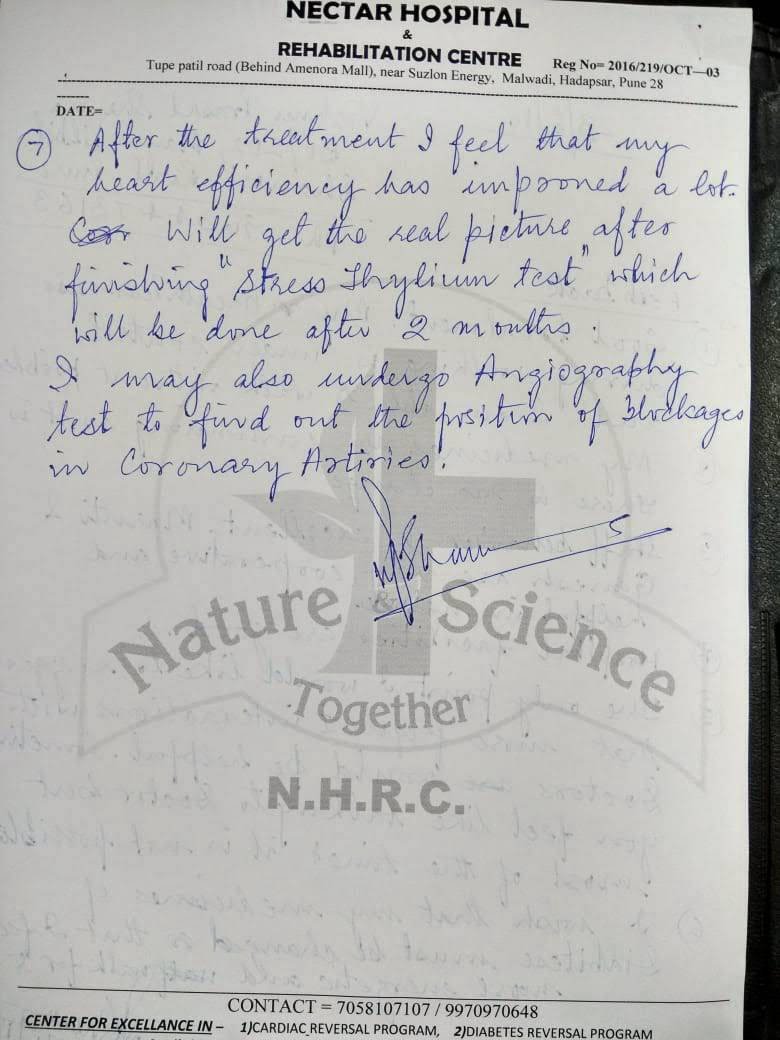 NECTAR HOSPITAL
&
REHABILITATION CENTRE
Reg No= 2016/219/OCT—03
Tupe patil road (Behind Amenora Mall), near Suzlon Energy, Malwadi, Hadapsar, Pune 28
DATE=
7 After the treatment I feel that my
heart efficiency has improned a lot.
Will get the real picture after
finishing "Stress Thylium test" which
will be done after 2 months.
I may also undergo Angiography
test to find out the position of blockages
in Coronary Artiries.
Nature & Science
Together
N.H.R.C.
CONTACT = 7058107107 / 9970970648
CENTER FOR EXCELLENCE IN – 1)CARDIAC REVERSAL PROGRAM, 2)DIABETES REVERSAL PROGRAM